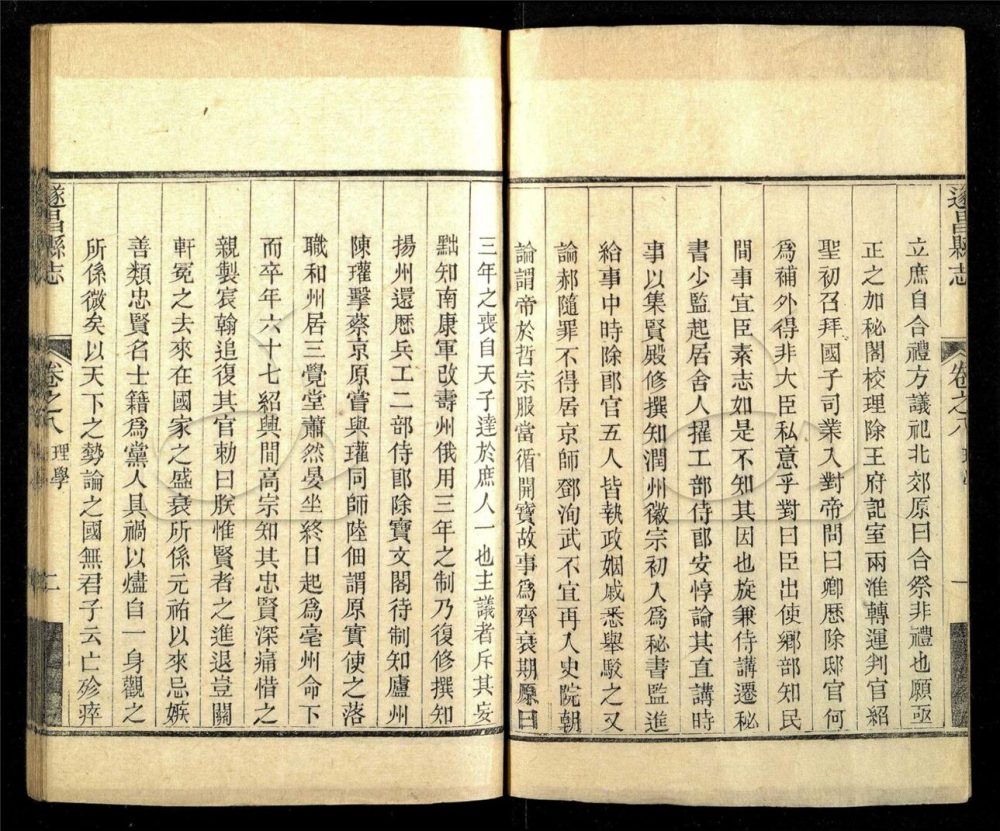 遂昌縣志
卷之八
一
立庶自合禮方議祀北郊原曰合祭非禮也願亟
正之加秘閣校理除王府記室兩淮轉運判官紹
聖初召拜國子司業入對帝問曰卿歷除邸官何
爲補外得非大臣私意乎對曰臣出使鄉部知民
間事宜臣素志如是不知其因也旋兼侍講遷秘
書少監起居舍人擢工部侍郎安惇論其直講時
事以集賢殿修撰知潤州徽宗初入爲秘書監進
給事中時除郎官五人皆執政姻戚悉舉駁之又
論郝隨罪不得居京師鄧洵武不宜再入史院朝
論謂帝於哲宗服當循開寶故事爲齊衰期原曰
三年之喪自天子達於庶人一也主議者斥其妄
黜知南康軍改壽州俄用三年之制乃復修撰知
揚州還歷兵工二部侍郎除寶文閣待制知廬州
陳瓘擊蔡京原嘗與瓘同師陸佃謂原實使之落
職和州居三覺堂蕭然晏坐終日起爲亳州命下
而卒年六十七紹興間高宗知其忠賢深痛惜之
親製宸翰追復其官勅曰朕惟賢者之進退豈關
軒冕之去來在國家之盛衰所係元祐以來忌嫉
善類忠賢名士籍爲黨人具禍以燼自一身觀之
所係微矣以天下之勢論之國無君子云亡殄瘁
遂昌縣志
卷之八 理學
二